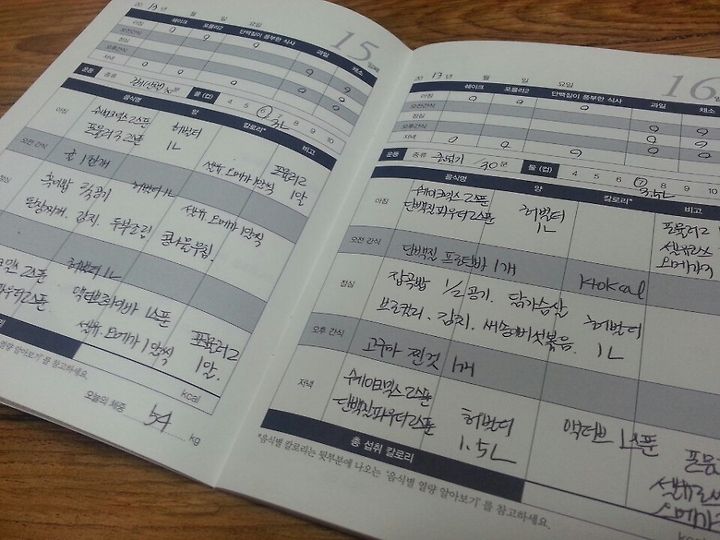 20 13 년 월 일 요일
15 일째
쉐이크 포뮬러2 단백질이 풍부한 식사 과일 채소
아침
오전간식
점심
오후간식
저녁
운동 종류 30분 물 (컵) 4 5 6 7 8 9 10
3L
음식명 양 칼로리* 비고
아침 쉐이크믹스 2스푼 허벌티 1L 포뮬러2 1알
오전 간식 귤 1개
흑미밥 허벌티 1L 셀류 오메가 1알씩
된장찌개. 김치. 두부조림. 콩나물무침.
2스푼 허벌티 1L
파우더 2스푼. 액티브화이바 1스푼
셀류 오메가 1알씩 포뮬러2 1알.
kcal
열량 알아보기'를 참고하세요.
오늘의 체중 54 kg
20 13 년 월 일 요일
16
쉐이크 포뮬러2 단백질이 풍부한 식사 과일 채소
아침
오전간식
점심
오후간식
저녁
운동 종류 줄넘기 30분 물 (컵) 4 5 6 7 8 9 10
3.5L
음식명 양 칼로리* 비고
아침 쉐이크믹스 2스푼 허벌티 1L
단백질파우더 2스푼 포뮬러2
셀류로스
오메가3
오전 간식 단백질 프로틴바 1개 140kcal
점심 잡곡밥 1/2공기. 닭가슴살 허벌티 1L
브로컬리. 김치. 새송이버섯볶음.
오후 간식 고구마 찐것 1개
저녁 쉐이크믹스 2스푼 허벌티 1.5L 액티브 1스푼
단백질파우더 2스푼 포뮬러
셀류로스
오메가3
총 섭취 칼로리
*음식별 칼로리는 뒷부분에 나오는 '음식별 열량 알아보기'를 참고하세요.